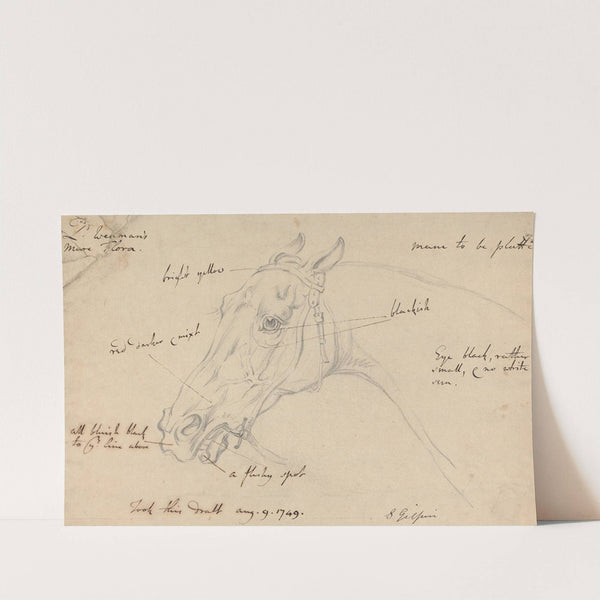 Ld. Wenman's
Mare Flora.
mane to be platt'd
bright yellow
blackish
red darker mixt
Eye black, rather
small, & no white
seen.
all bluish black
to ye line above
a fleshy spot
Took this Draft aug. 9. 1749.
S Gilpin